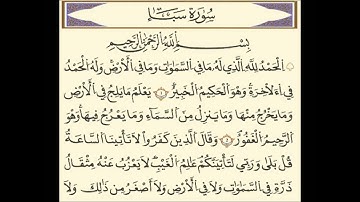 سُورَةُ سَبَإٍ
بِسْمِ اللَّهِ الرَّحْمَٰنِ الرَّحِيمِ
الْحَمْدُ لِلَّهِ الَّذِي لَهُ مَا فِي السَّمَاوَاتِ وَمَا فِي الْأَرْضِ وَلَهُ الْحَمْدُ
فِي الْآخِرَةِ وَهُوَ الْحَكِيمُ الْخَبِيرُ ۝ يَعْلَمُ مَا يَلِجُ فِي الْأَرْضِ
وَمَا يَخْرُجُ مِنْهَا وَمَا يَنزِلُ مِنَ السَّمَاءِ وَمَا يَعْرُجُ فِيهَا وَهُوَ
الرَّحِيمُ الْغَفُورُ ۝ وَقَالَ الَّذِينَ كَفَرُوا لَا تَأْتِينَا السَّاعَةُ
قُلْ بَلَىٰ وَرَبِّي لَتَأْتِيَنَّكُمْ عَالِمِ الْغَيْبِ لَا يَعْزُبُ عَنْهُ مِثْقَالُ
ذَرَّةٍ فِي السَّمَاوَاتِ وَلَا فِي الْأَرْضِ وَلَا أَصْغَرُ مِن ذَٰلِكَ وَلَا